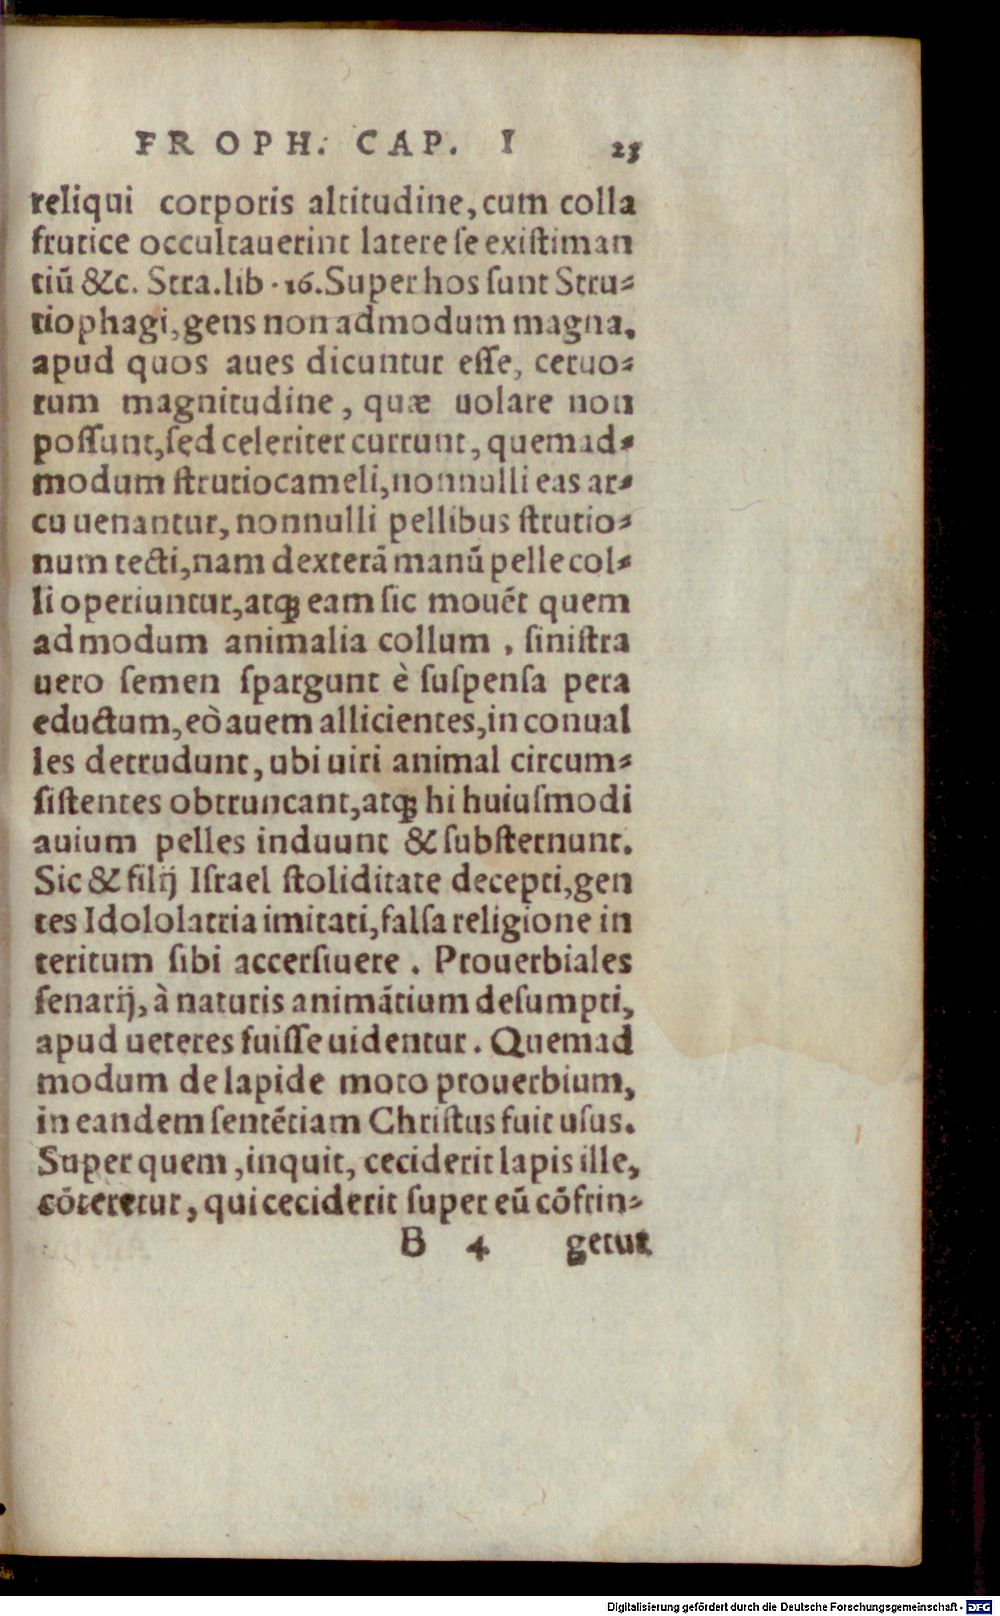 FROPH. CAP. I 23
reliqui corporis altitudine, cum colla
frutice occultauerint latere se existiman
tiũ &c. Stra. lib. 16. Super hos sunt Stru-
tiophagi, gens non admodum magna,
apud quos aues dicuntur esse, ceruo-
rum magnitudine, quæ uolare non
possunt, sed celeriter currunt, quemad-
modum strutiocameli, nonnulli eas ar-
cu uenantur, nonnulli pellibus strutio-
num tecti, nam dexterã manũ pelle col-
li operiuntur, atq; eam sic mouẽt quem
admodum animalia collum, sinistra
uero semen spargunt è suspensa pera
eductum, eò auem allicientes, in conual
les detrudunt, ubi uiri animal circum-
sistentes obtruncant, atq; hi huiusmodi
auium pelles induunt & substernunt.
Sic & filij Israel stoliditate decepti, gen
tes Idololatria imitati, falsa religione in
teritum sibi accersiuere. Prouerbiales
senarij, à naturis animãtium desumpti,
apud ueteres fuisse uidentur. Quemad
modum de lapide moto prouerbium,
in eandem sentẽtiam Christus fuit usus.
Super quem, inquit, ceciderit lapis ille,
cõteretur, qui ceciderit super eũ cõfrin-
B 4 getur
Digitalisierung gefördert durch die Deutsche Forschungsgemeinschaft - DFG